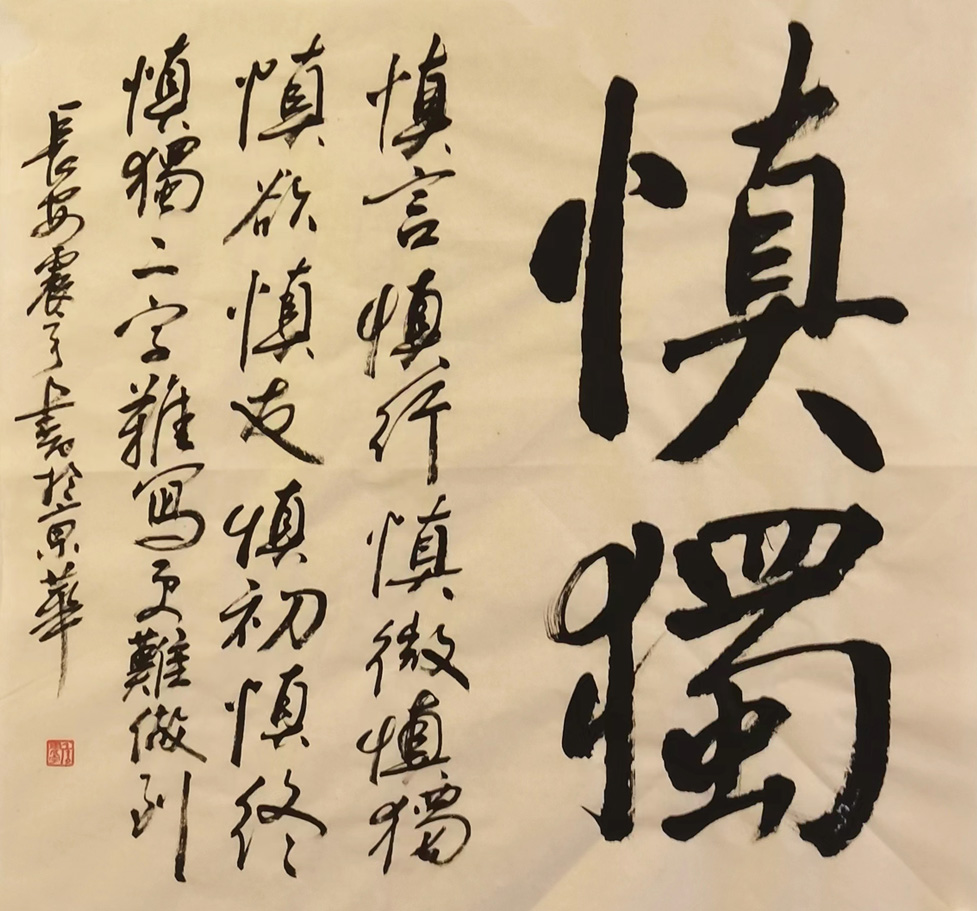 慎獨
慎言慎行慎微慎獨
慎欲慎友慎初慎終
慎獨二字難寫更難做到
長安震亨書於京華